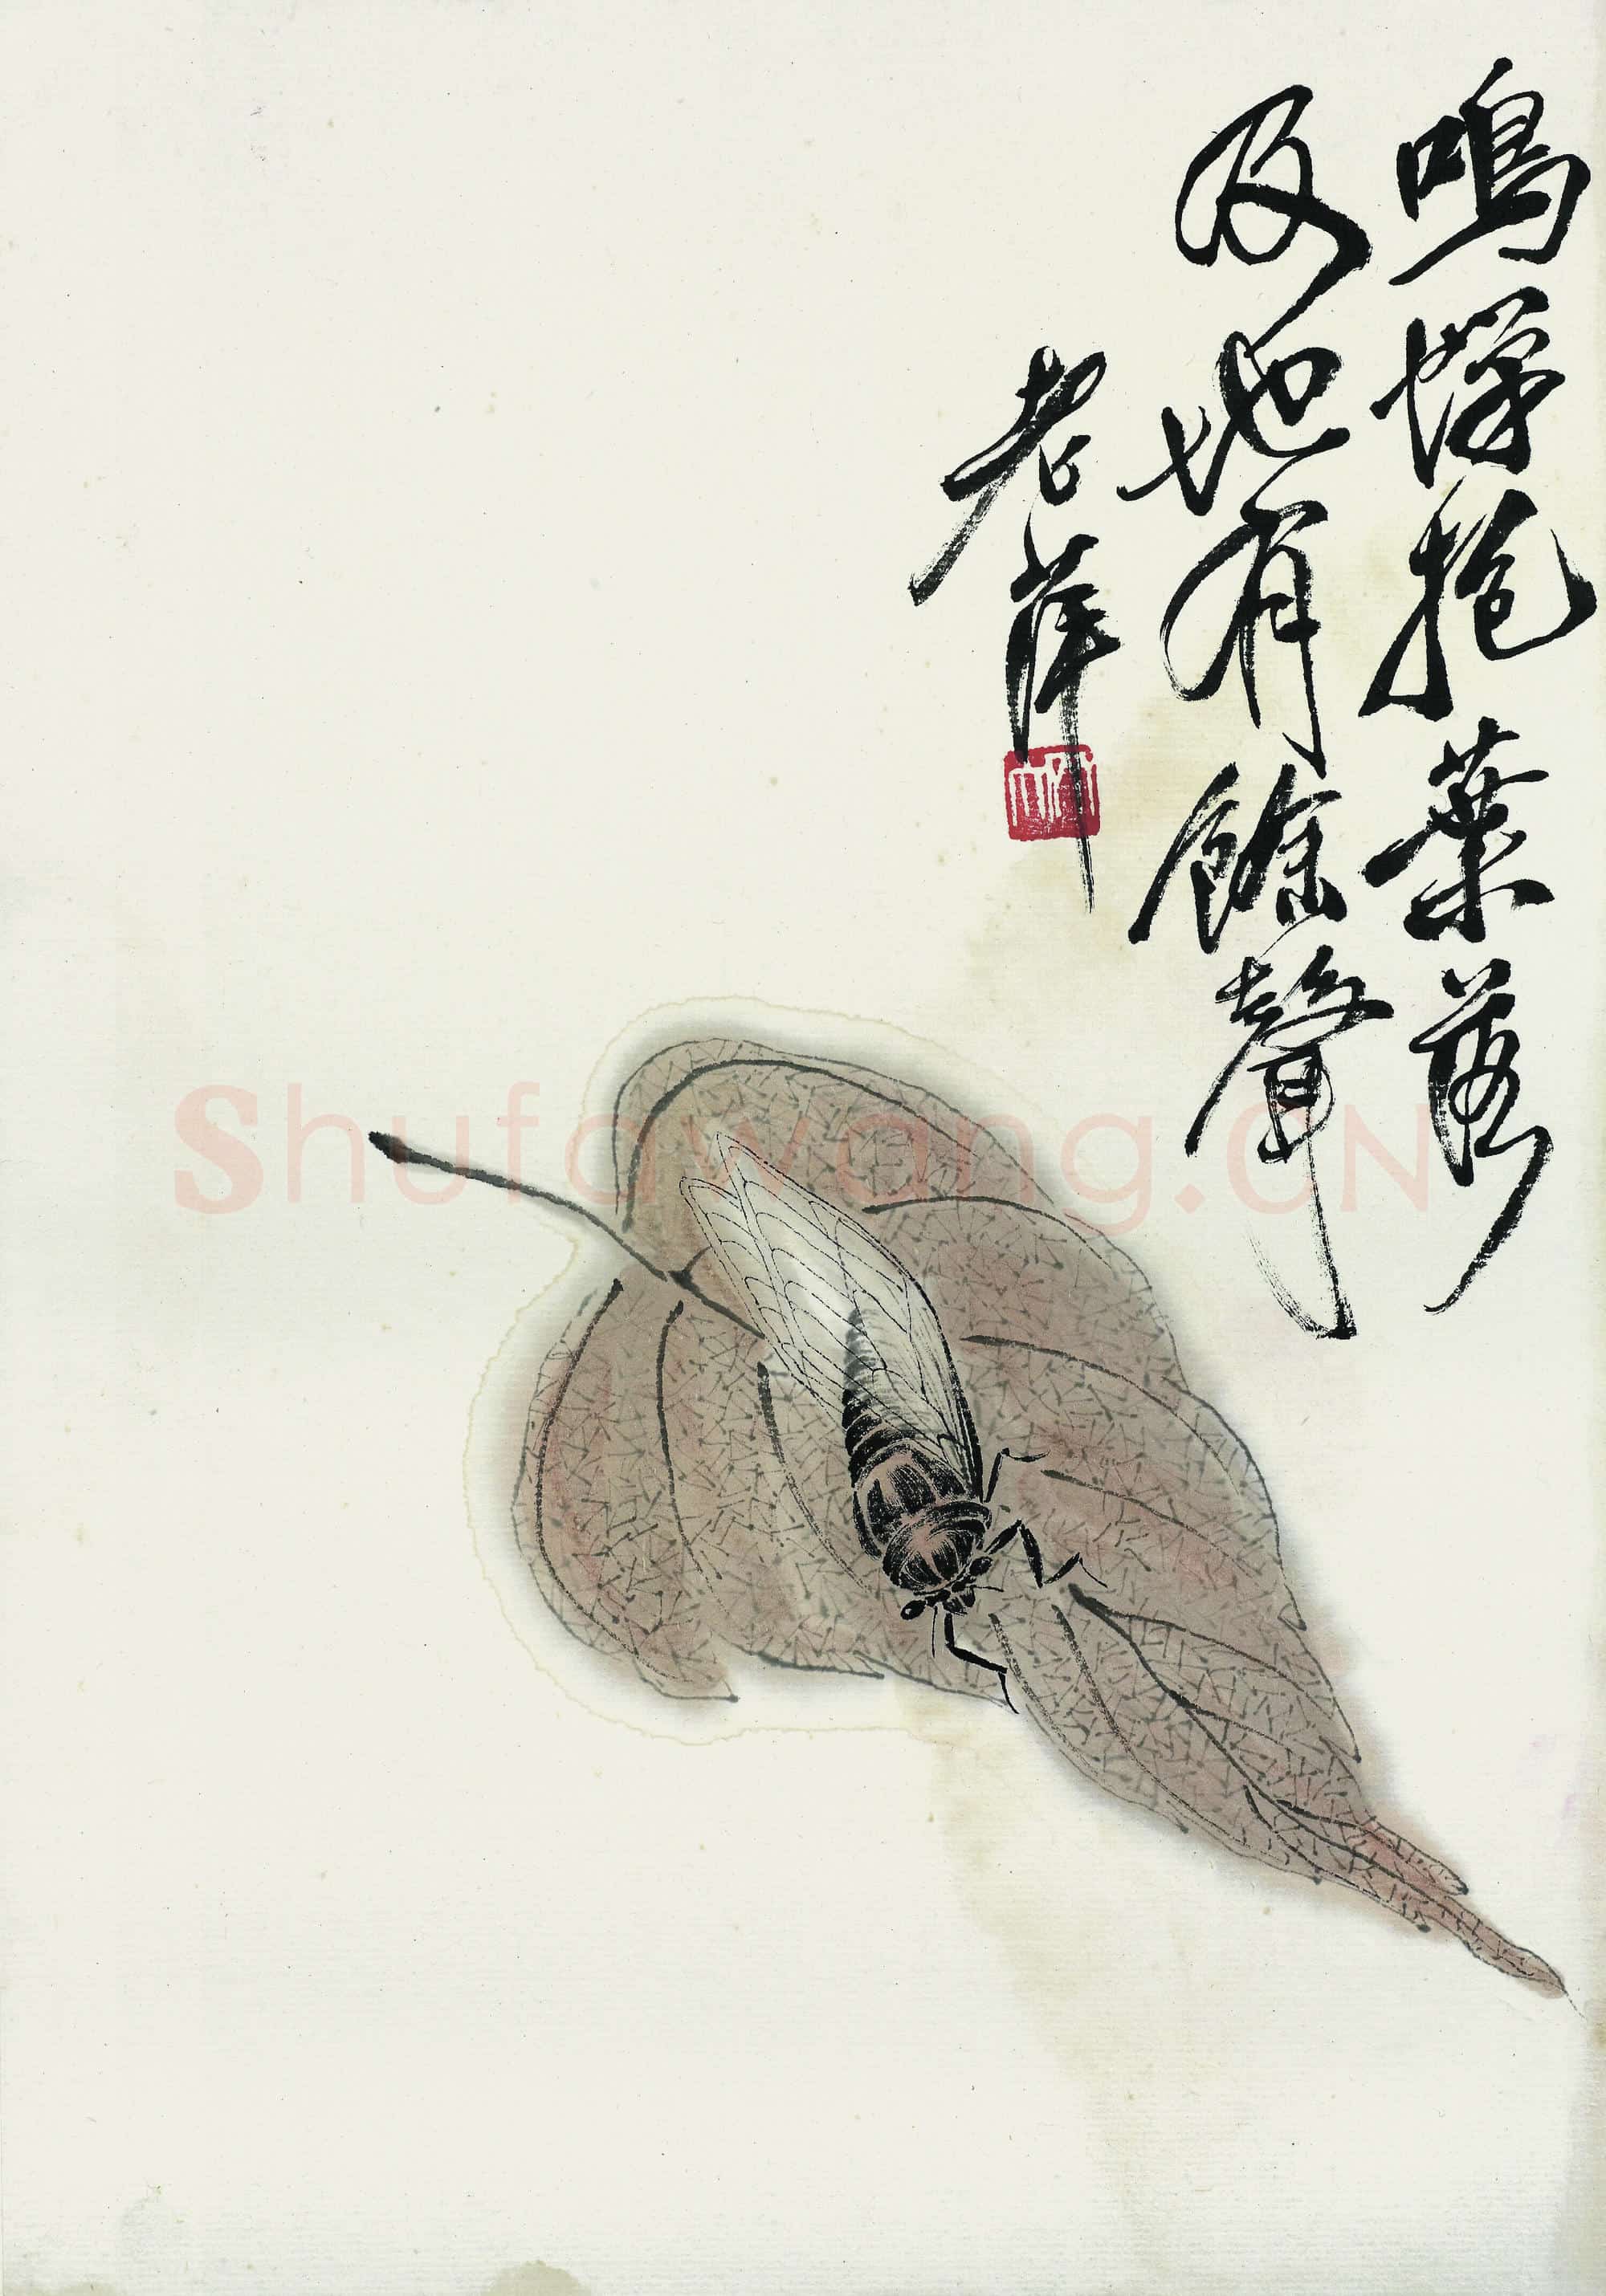 鳴蟬抱葉落
及地有餘聲
老萍
Shufawang.CN